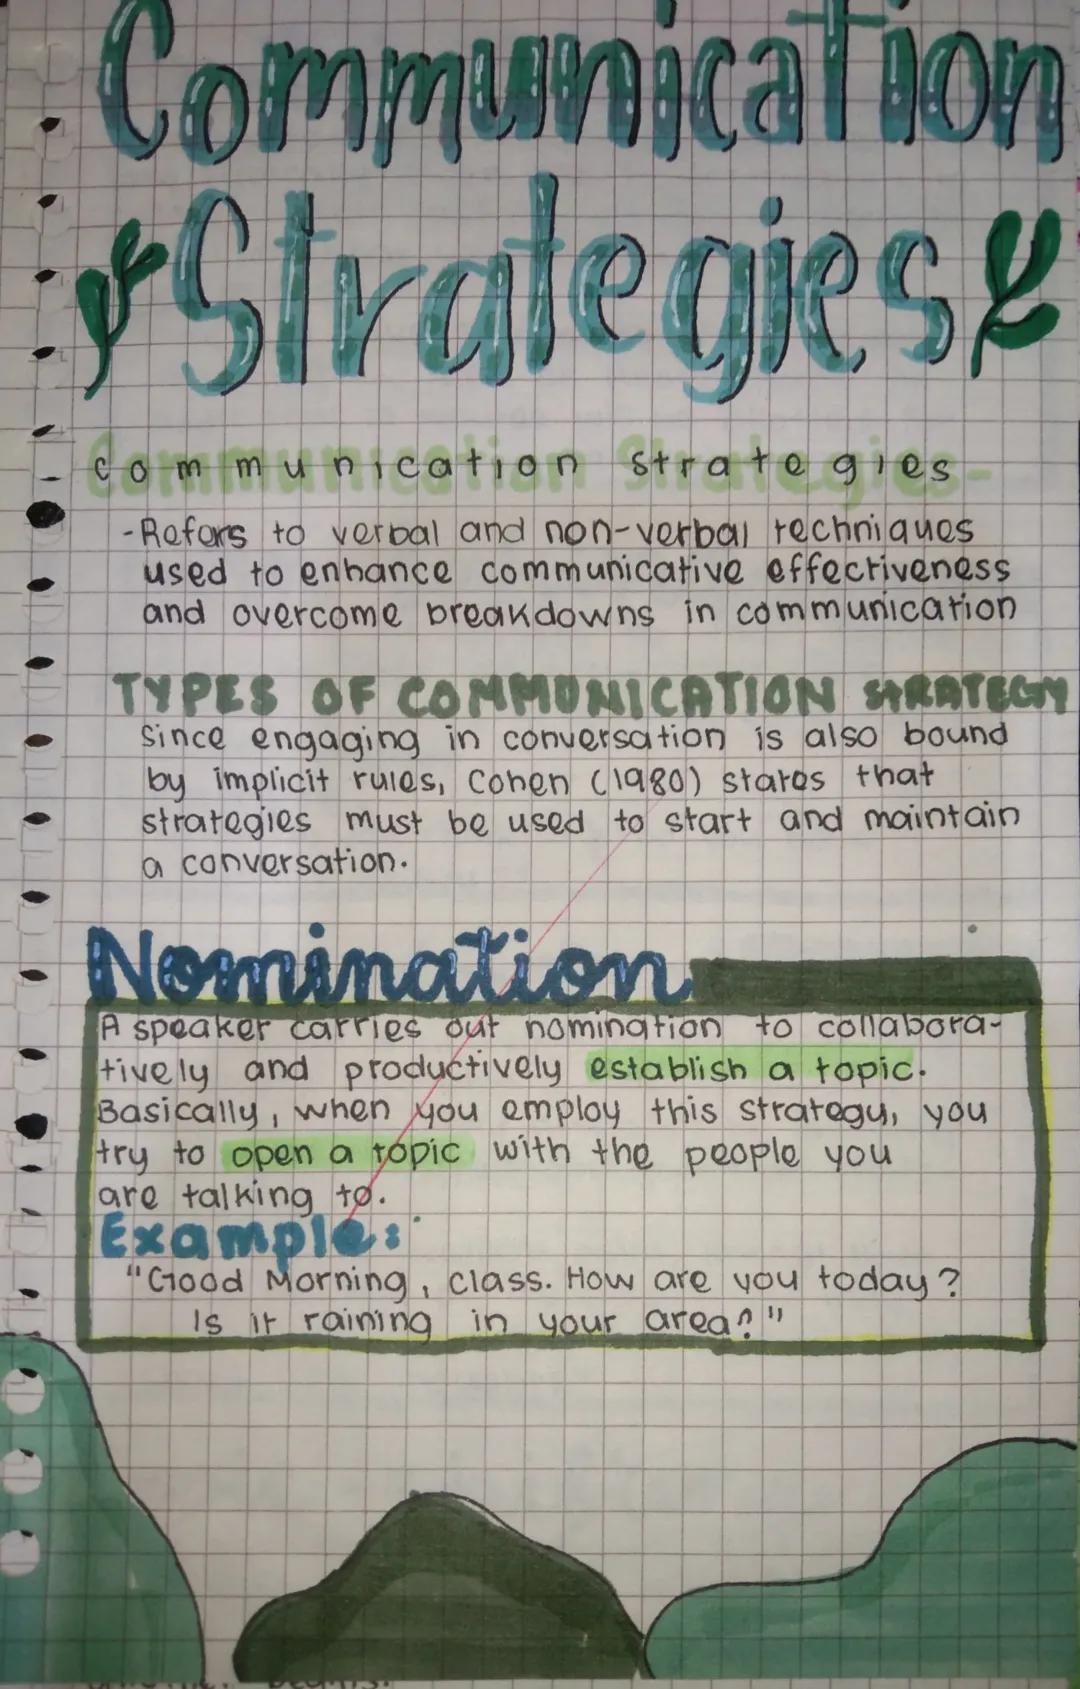 Communication
Strategies
Communication Strategies-
-Refers to verbal and non-verbal techniques
used to enhance communicative effectiveness
and overcome breakdowns in communication
TYPES OF COMMUNICATION STRATEGY
Since engaging in conversation is also bound
by implicit rules, Cohen (1980) states that
strategies must be used to start and maintain
a conversation.
Nomination
A speaker carries out nomination to collabora-
tively and productively establish a topic.
Basically, when you employ this strategy, you
try to open a topic with the people you
are talking to.
Example:
"Good Morning, class. How are you today?
Is it raining in your area?"